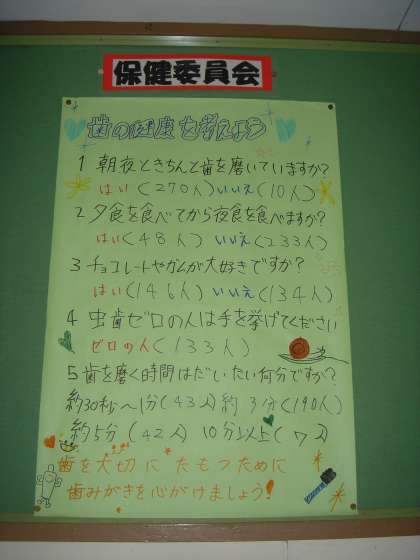 保健委員会
歯の健康を考えよう
1 朝夜ときちんと歯を磨いていますか?
はい(270人)いいえ(10人)
2 夕食を食べてから夜食を食べますか?
はい(48人) いいえ(233人)
3 チョコレートやガムが大好きですか?
はい(146人) いいえ(134人)
4 虫歯ゼロの人は手を挙げてください
ゼロの人(133人)
5 歯を磨く時間はだいたい何分ですか?
約30秒〜1分(43人)約3分(190人)
約5分(42人) 10分以上(7人)
歯を大切にたもつために
歯みがきを心がけましょう!